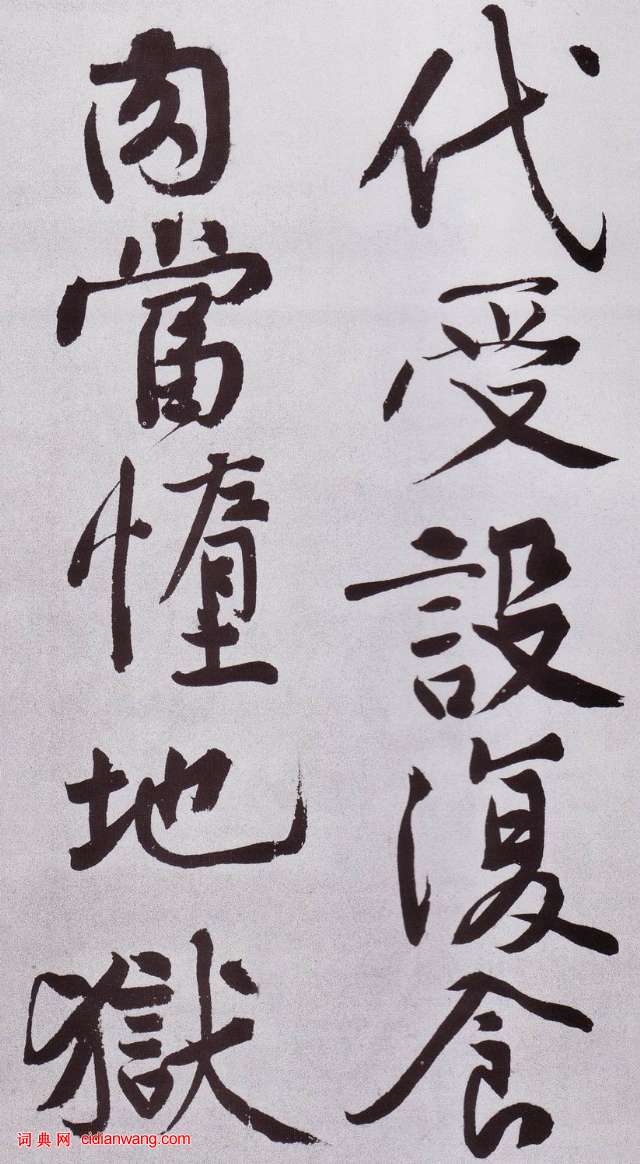 代受設復食
肉當憧地獄
词典网 cidianwang.com